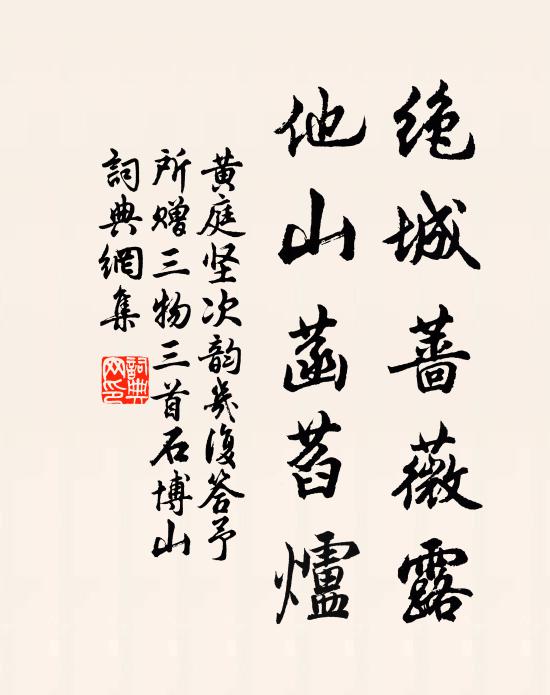 绝城蔷薇露
他山菡萏爐
黄庭坚次韵几復答予
所赠三物三首石博山
詞典網集
詞典網印